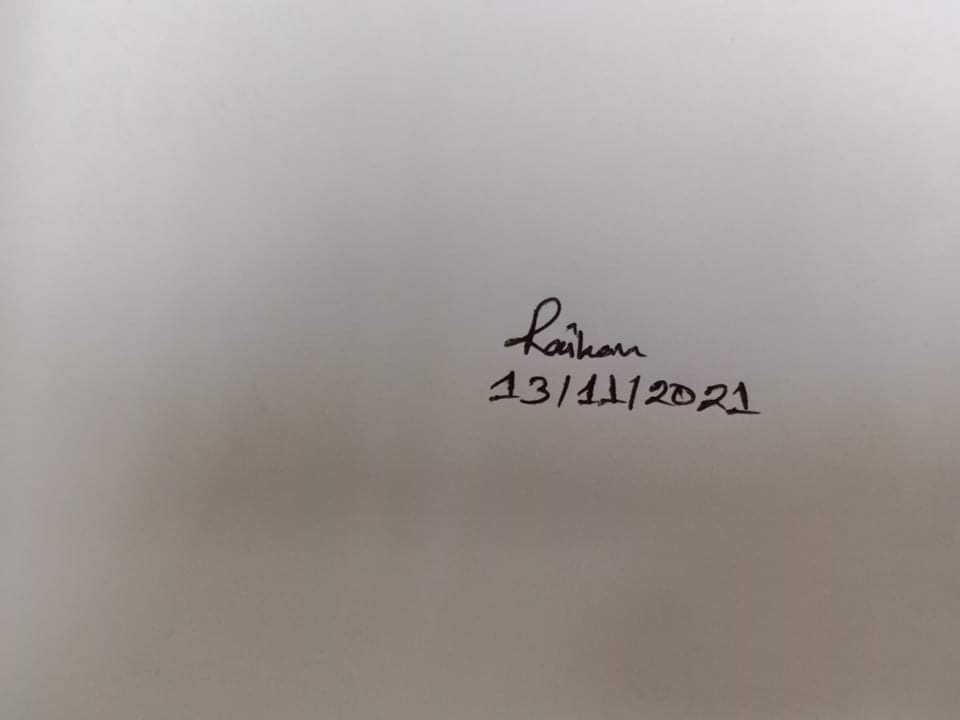 Raihan
13/11/2021